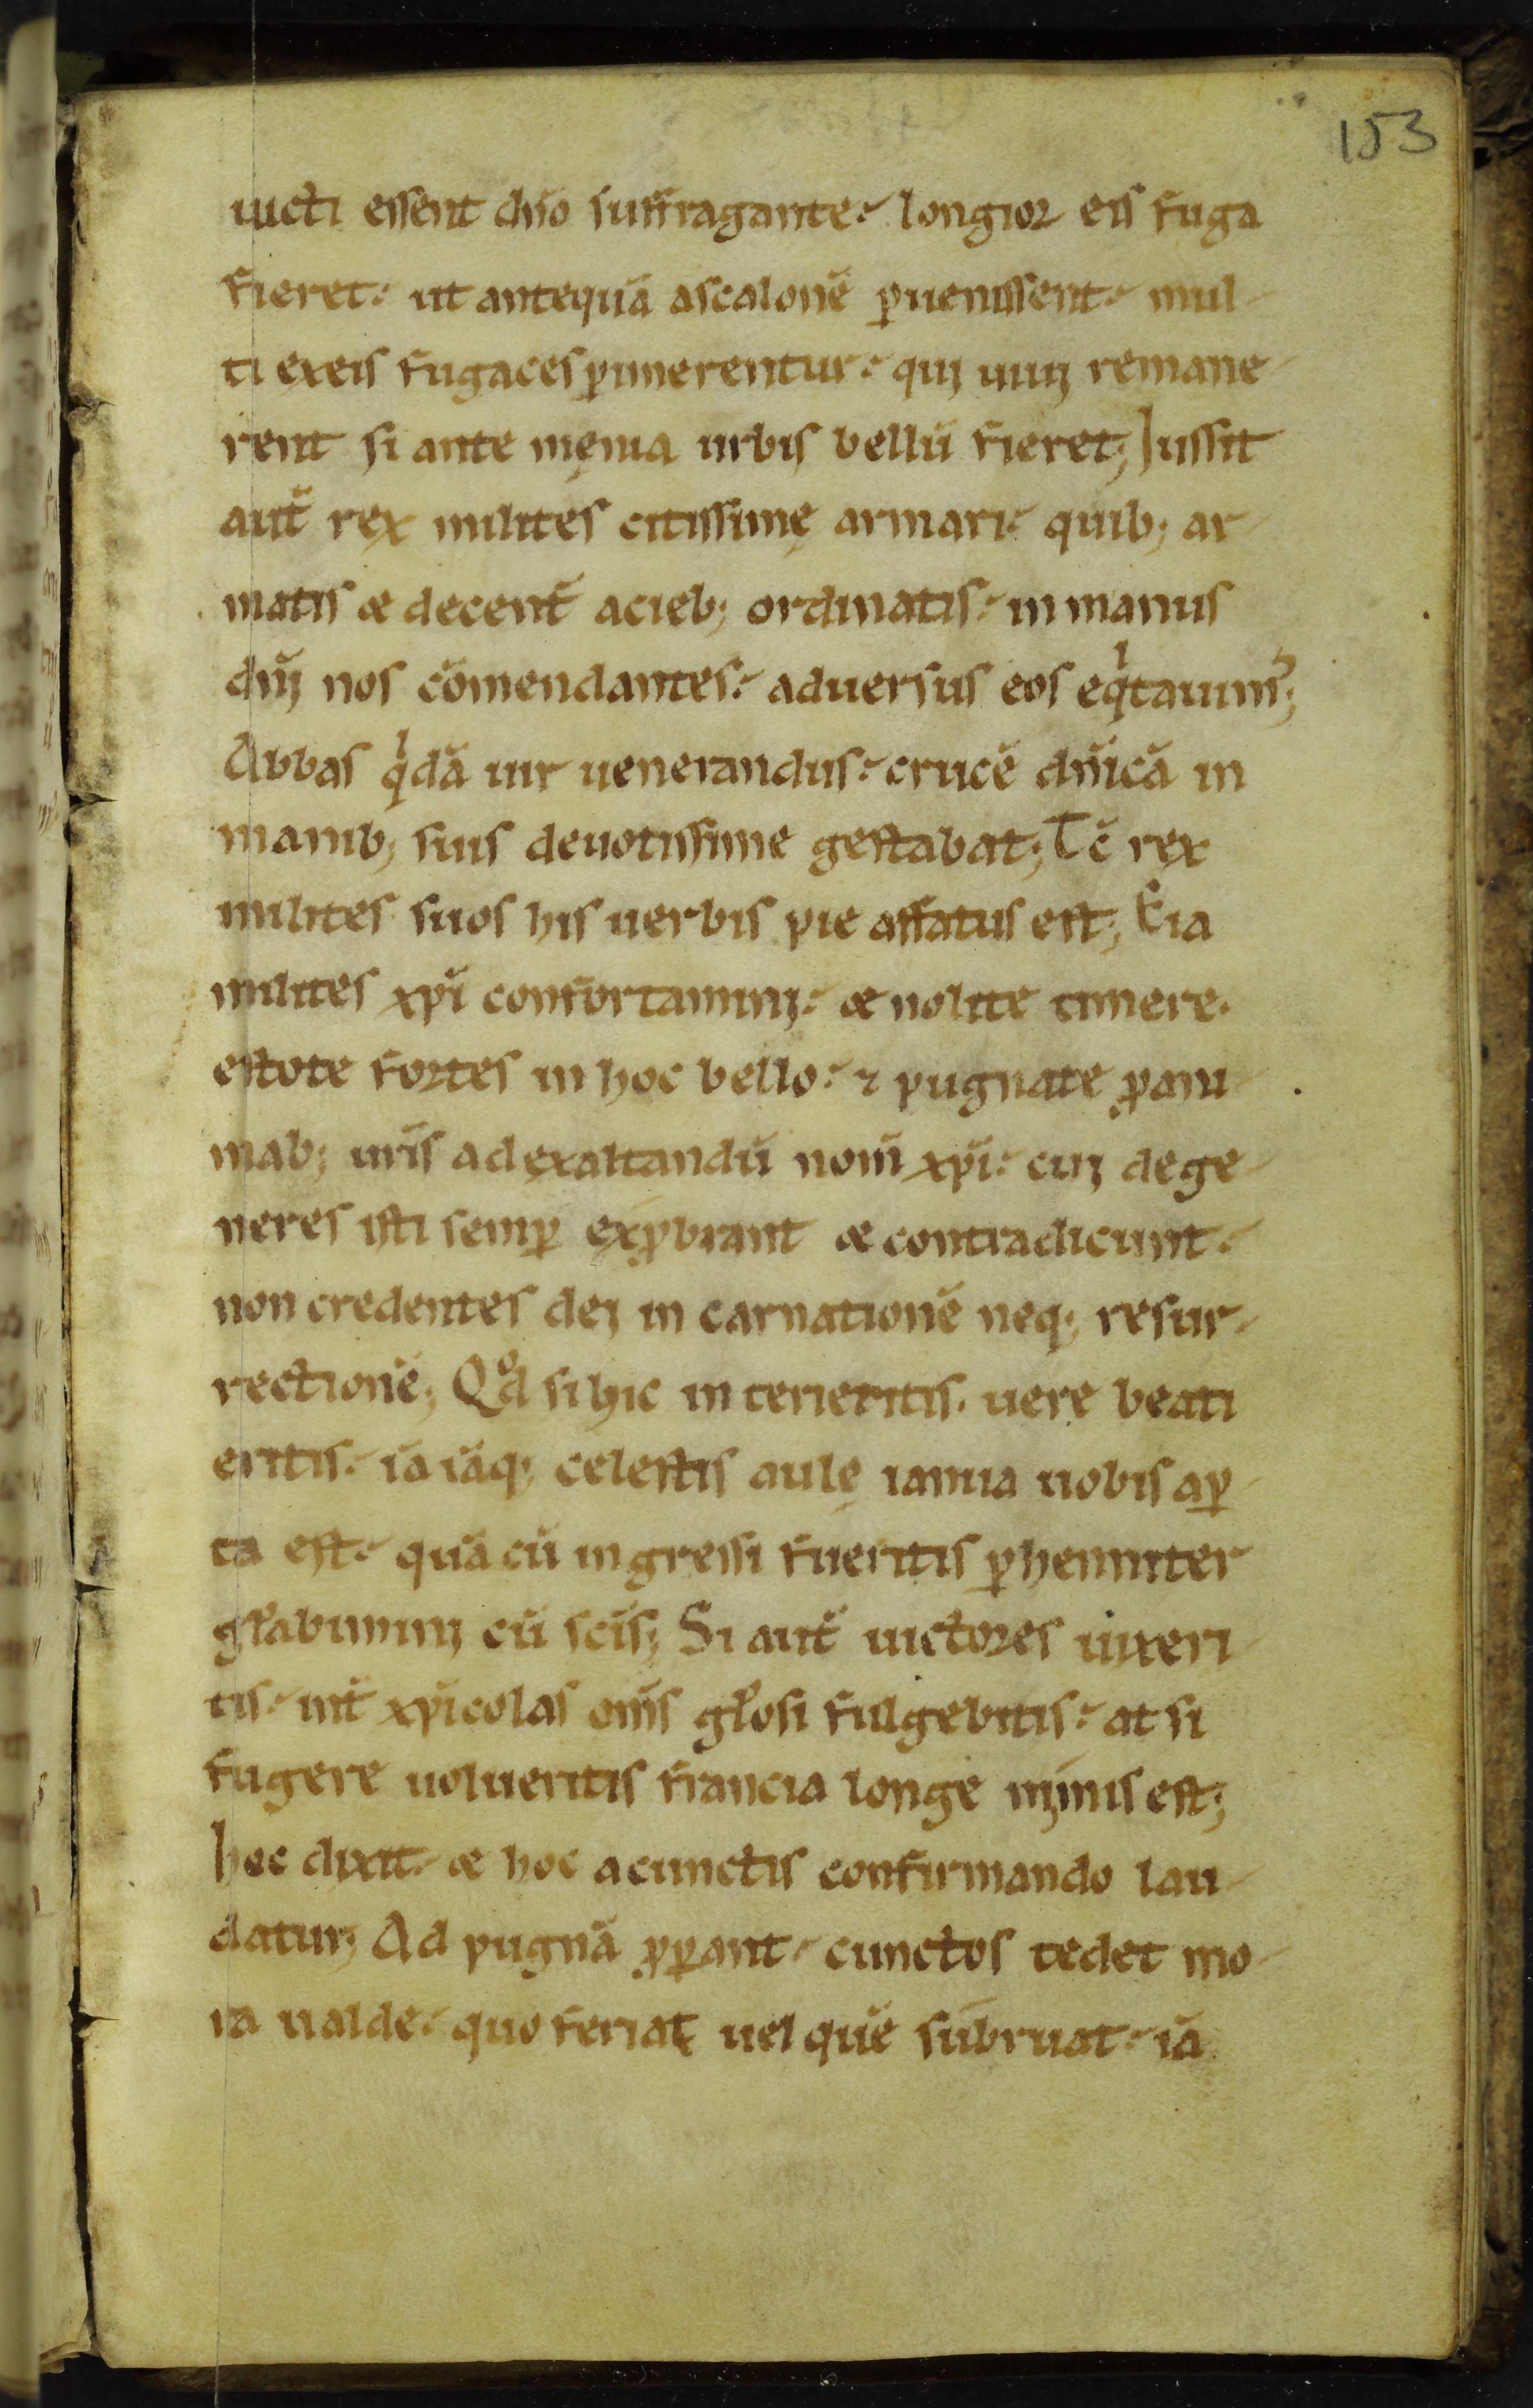 153
uicti essent dn̄o suffragante. longior eis fuga
fieret. ut antequā ascalonē ꝑuenissent. mul-
ti exeis fugaces ꝑimerentur. qui uiui remane-
rent si ante męnia urbis bellū fieret; Iussit
aut̄ rex milites citissimę armari. quib; ar-
matis & decent̄ acieb; ordinatis. in manus
dn̄i nos cōmendantes. aduersus eos eqͥtauim᷒;
Abbas qͥdā uir uenerandus. crucē dn̄icā in
manib; suis deuotissime gestabat; Tc̄ rex
milites suos his uerbis pie affatus est; Eia
milites xp̄i confortamini. & nolite timere.
estote fortes in hoc bello. ⁊ pugnate ꝓ ani-
mab; ur̄is ad exaltandū nom̄ xp̄i. cui dege-
neres isti semꝑ exꝓbrant & contradicunt.
non credentes dei in carnationē neq; resur-
rectionē; Qͦd si hic in terieritis. uere beati
eritis. iā iāq; celestis aulę ianua uobis aꝑ-
ta est. quā cū ingressi fueritis ꝑhenniter
gl̄abimini cū sc̄is; Si aut̄ uictores uixeri-
tis. int̄ xp̄icolas om̄s gl̄osi fulgebitis. at si
fugere uolueritis francia longe nimis est;
hoc dixit. & hoc acunctis confirmando lau-
datur; Ad pugnā ꝓꝑant. cunctos tedet mo-
ra ualde. quo feriat uel quē subruat. iā